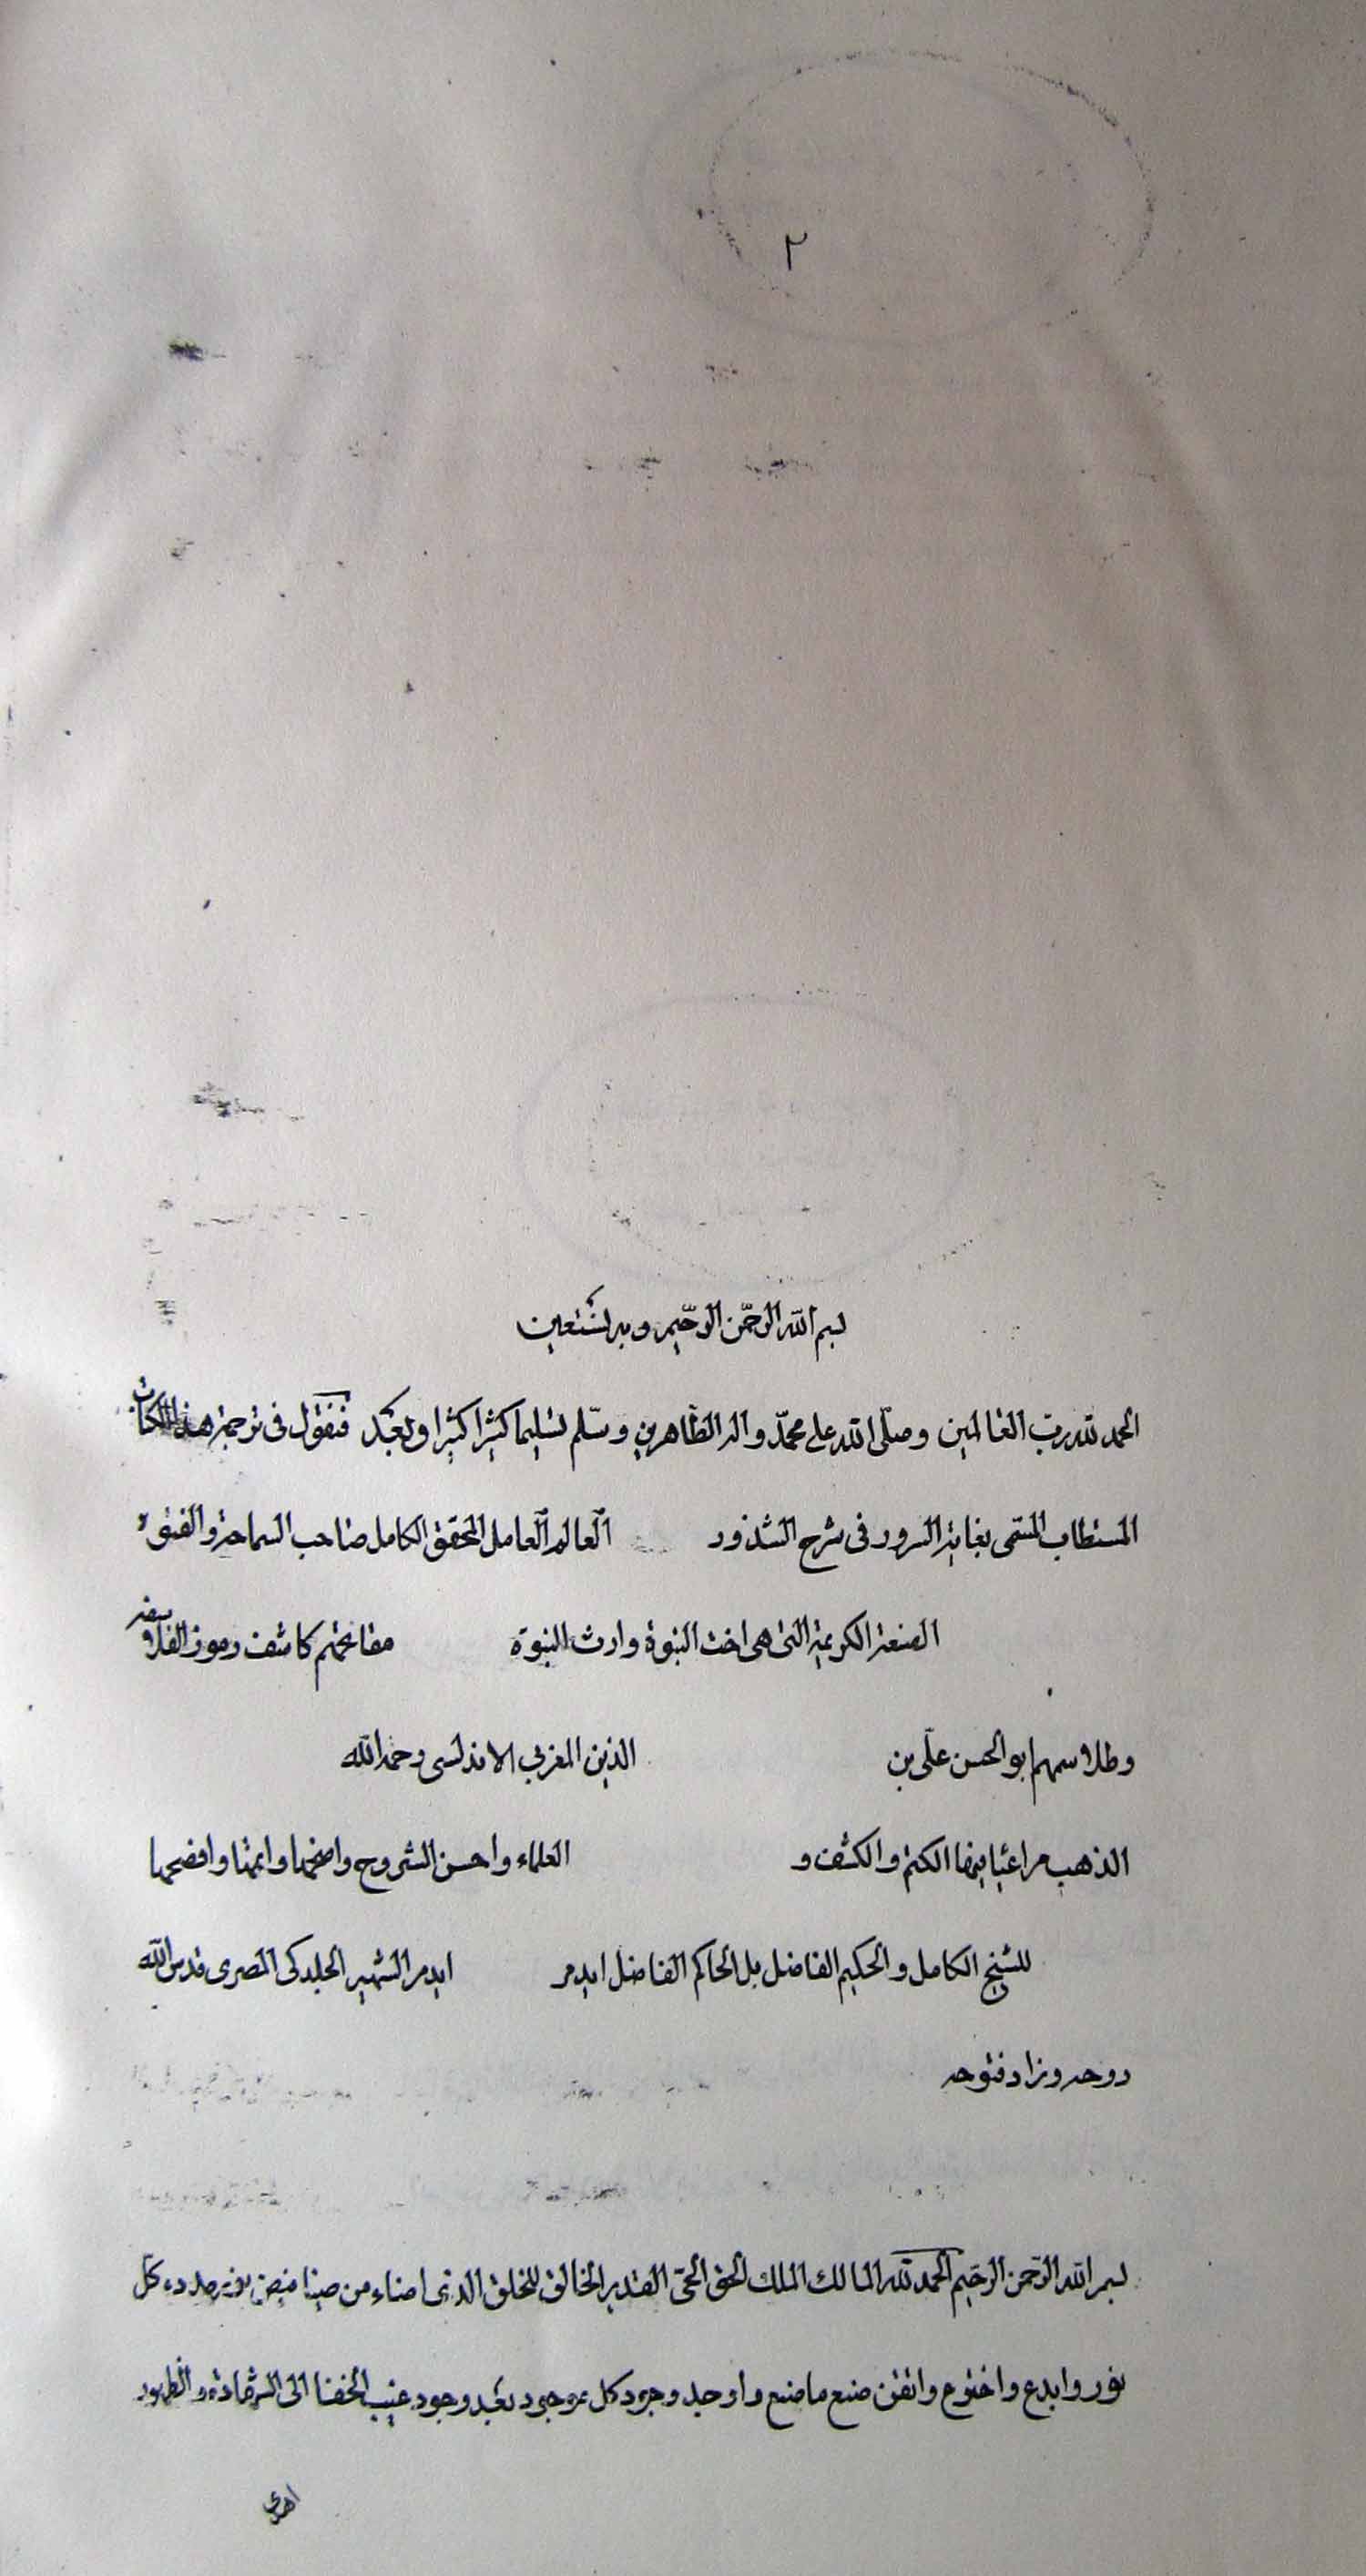 ٢
بسم الله الرحمن الرحيم وبه نستعين
الحمد لله رب العالمين وصلى الله على محمد واله الطاهرين وسلم تسليما كثيرا كثيرا وبعد فنقول فى ترجمة هذا الكتاب
المستطاب المسمى بغاية السرور فى شرح الشذور العالم العامل المحقق الكامل صاحب السماحة والفتوة
الصنعة الكريمة التى هى اخت النبوة وارث النبوة مفاتحهم كاشف رموز الفلاسفه
وطلاسمهم ابو الحسن على بن الدين المغربى الاندلسى رحمه الله
الذهب مراعيا فيها الكتم والكشف و العلماء واحسن الشروح واضخمها واتمها وافصحها
للشيخ الكامل والحكيم الفاضل بل الحاكم الفاضل ايدمر ايدمر الشهير الجلدكى المصرى قدس الله
روحه وزاد فتوحه
بسم الله الرحمن الرحيم الحمد لله المالك الملك الحق الحى القدير الخالق للخلق الذى اضاء من ضيا فيض نوره كل
نور وابدع واخترع واتقن صنع ما صنع واوجد وجود كل موجود بعد وجود غيب الخفا الى الشهادة والظهور